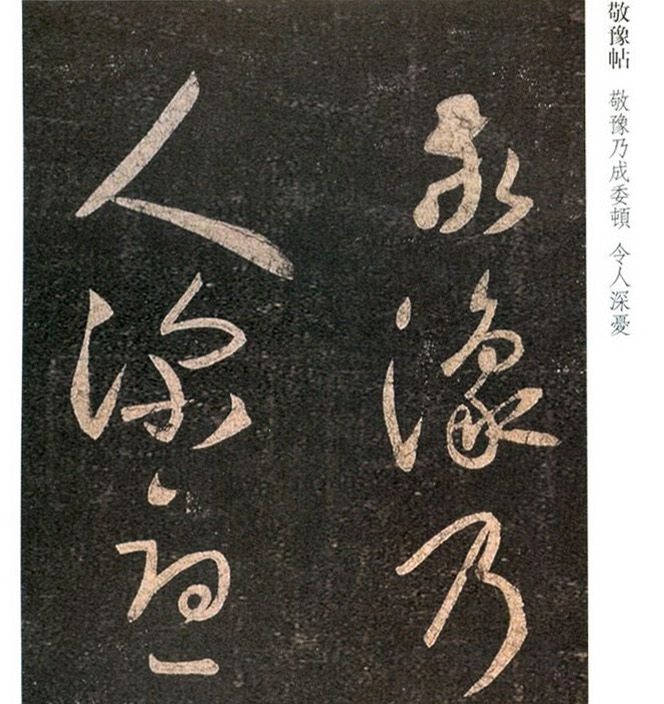 敬豫帖 敬豫乃成委頓 令人深憂
敬豫乃
人深憂